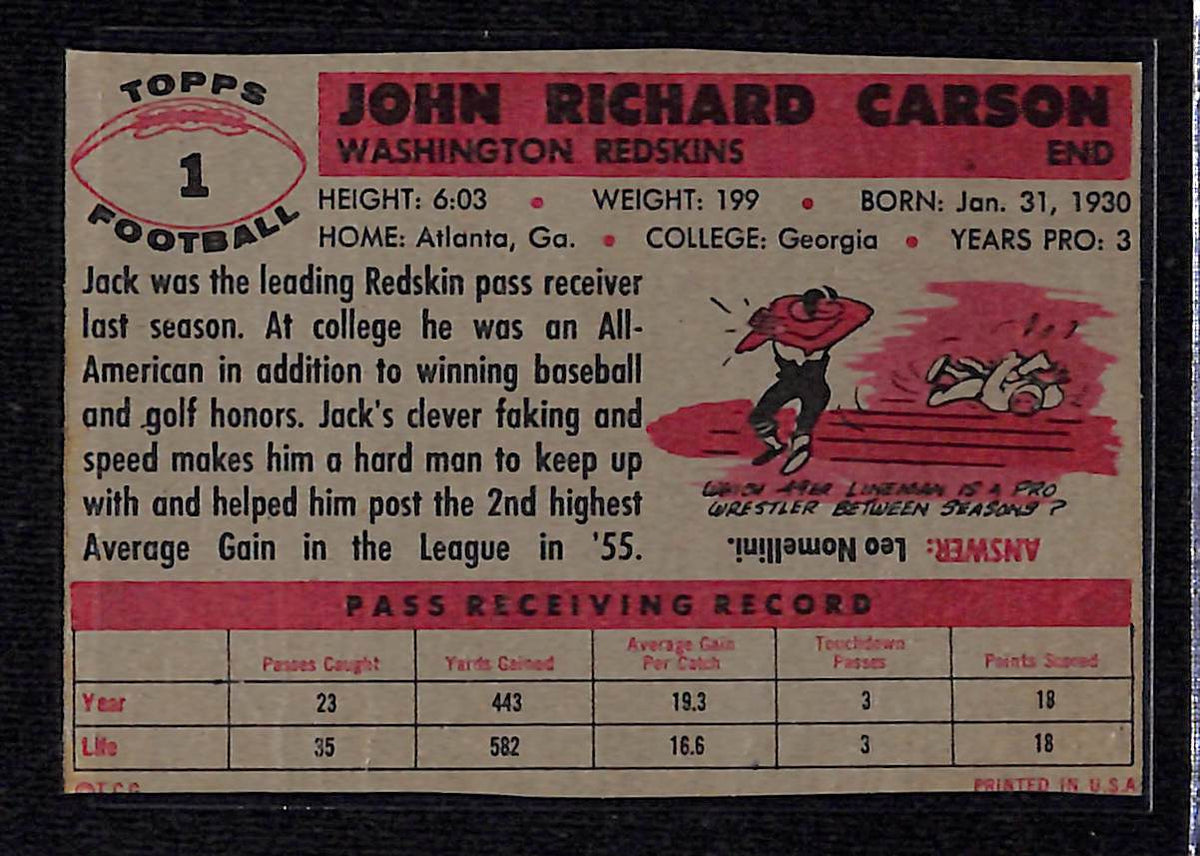 TOPPS
1
FOOTBALL
JOHN RICHARD CARSON
WASHINGTON REDSKINS END
HEIGHT: 6:03 • WEIGHT: 199 • BORN: Jan. 31, 1930
HOME: Atlanta, Ga. • COLLEGE: Georgia • YEARS PRO: 3
Jack was the leading Redskin pass receiver
last season. At college he was an All-
American in addition to winning baseball
and golf honors. Jack's clever faking and
speed makes him a hard man to keep up
with and helped him post the 2nd highest
Average Gain in the League in '55.
WHICH 49ER LINEMAN IS A PRO
WRESTLER BETWEEN SEASONS?
ANSWER: Leo Nomellini.
PASS RECEIVING RECORD
Passes Caught Yards Gained Average Gain Per Catch Touchdown Passes Points Scored
Year 23 443 19.3 3 18
Life 35 582 16.6 3 18
©T.C.G. PRINTED IN U.S.A